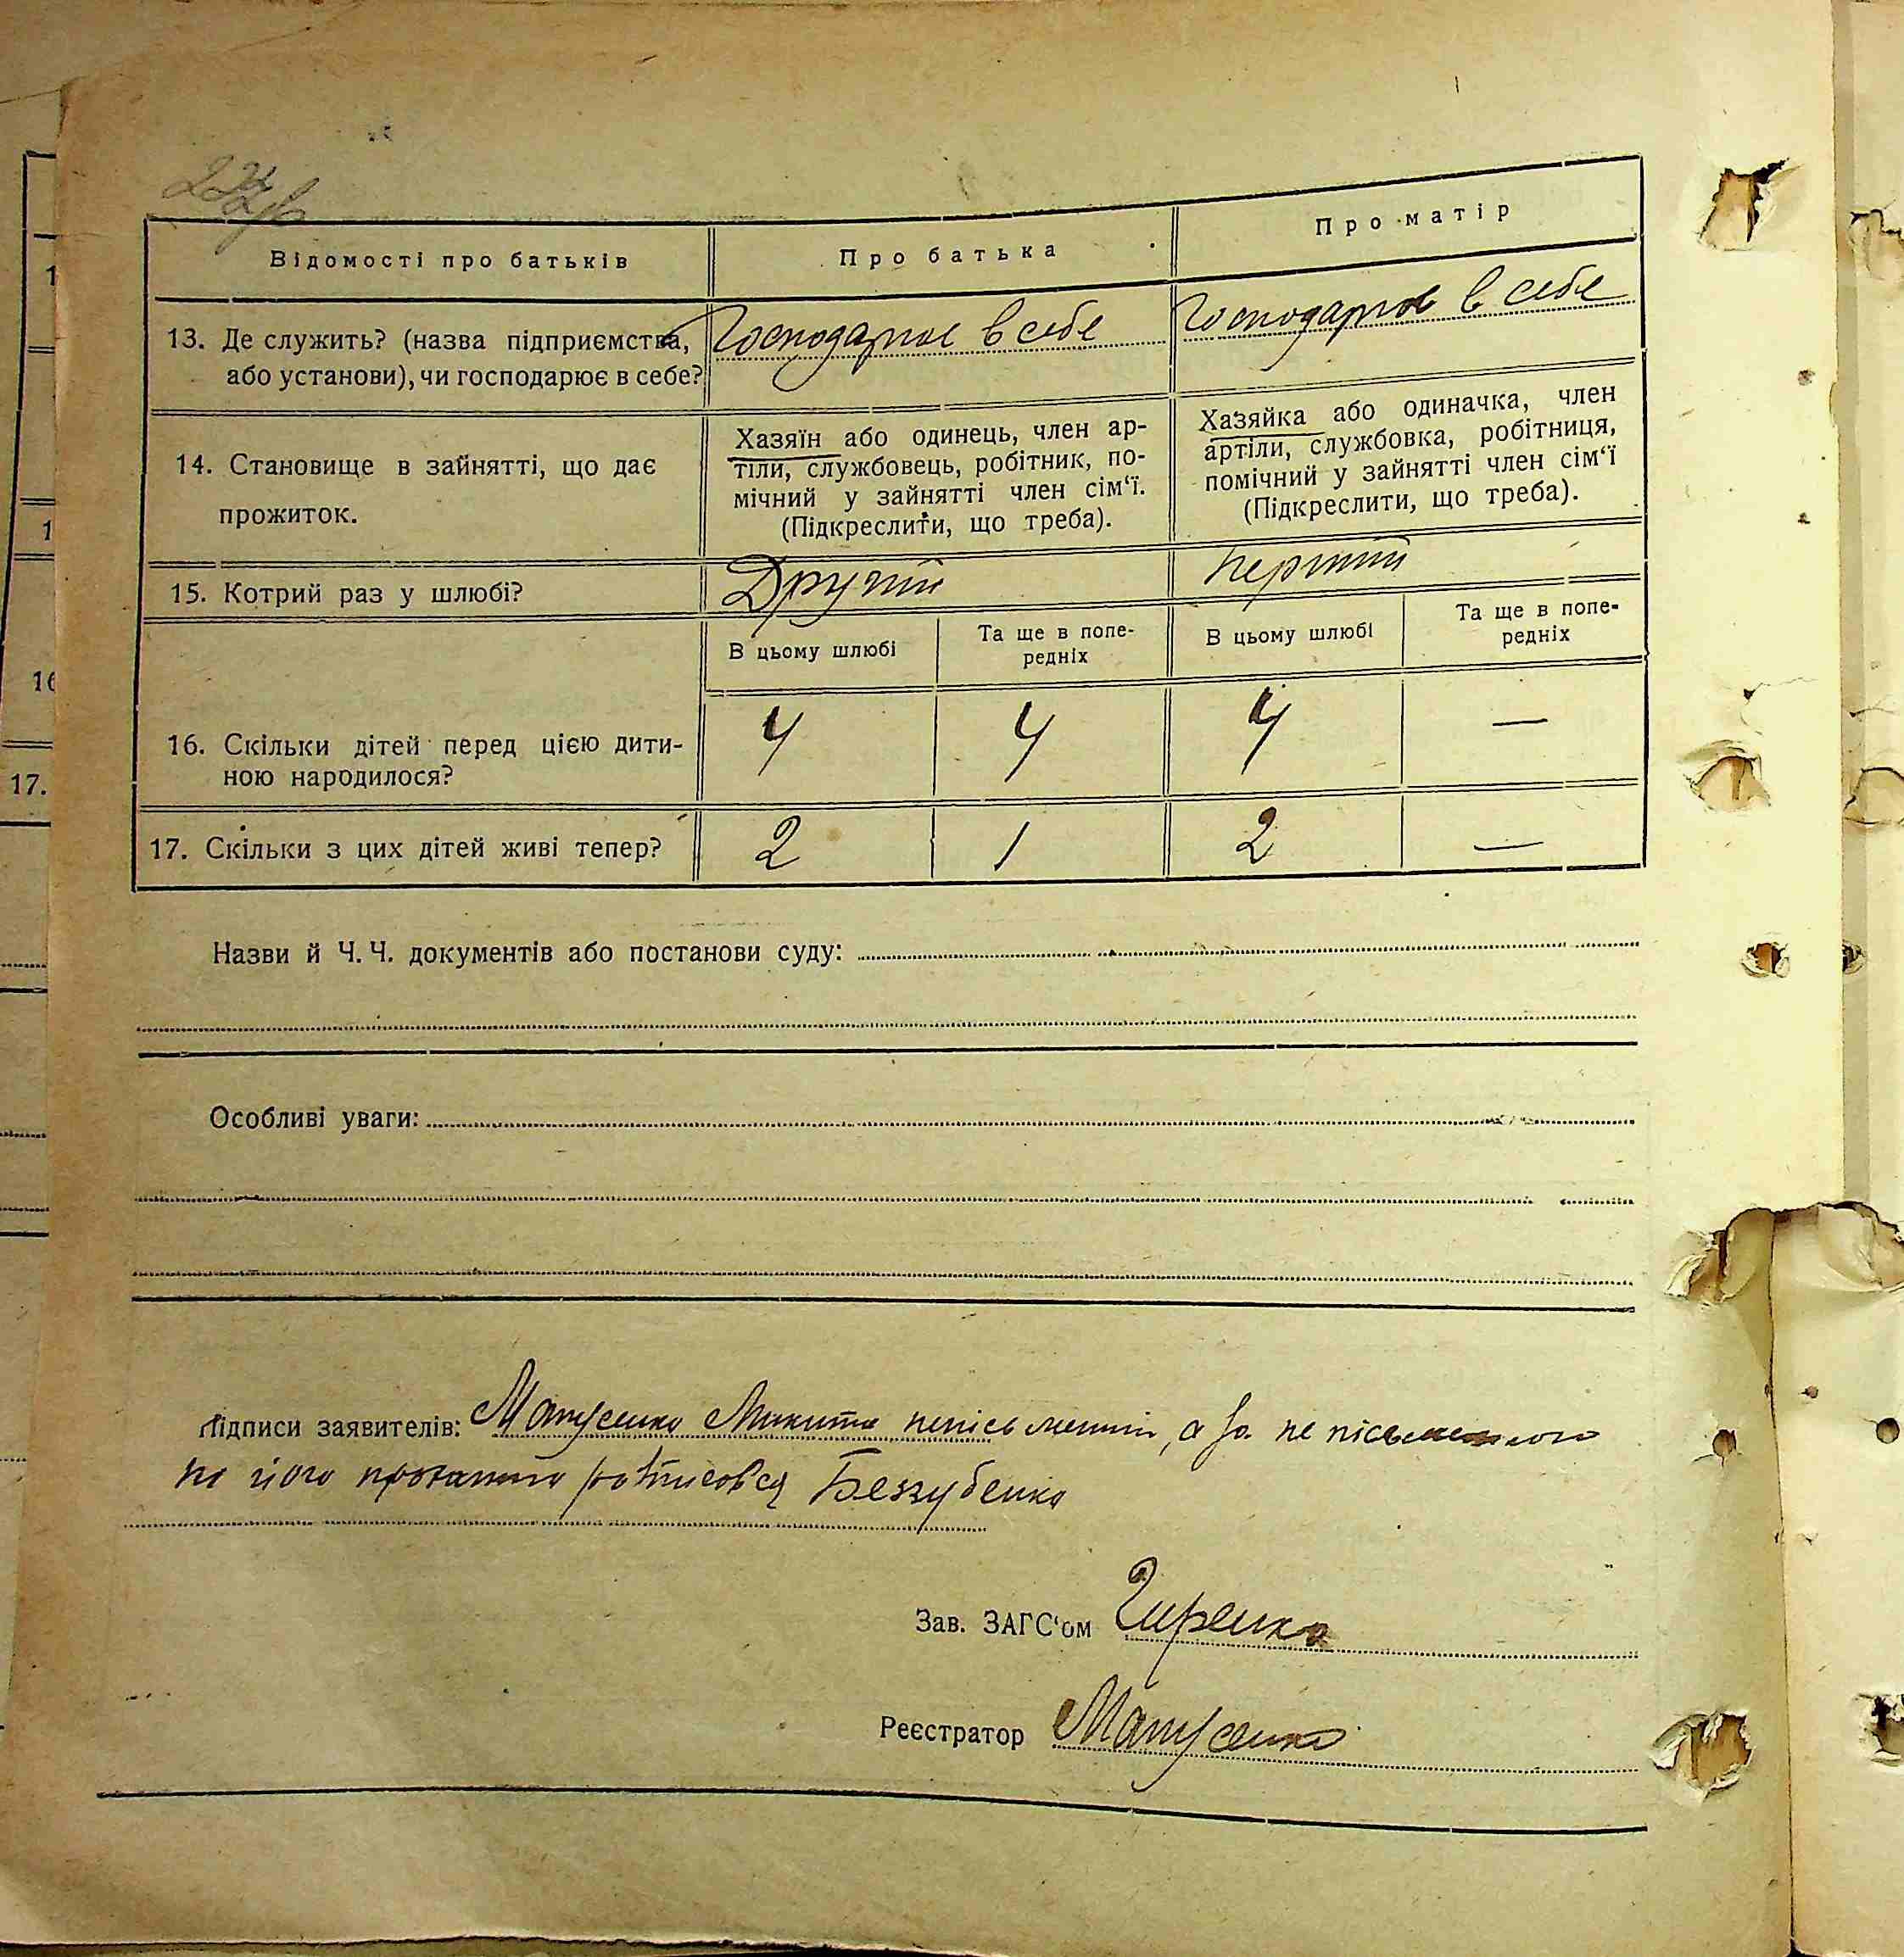 Відомості про батьків
Про батька
Про матір
13. Де служить? (назва підприємства,
або установи), чи господарює в себе?
Господарює в себе
Господарює в себе
14. Становище в зайнятті, що дає
прожиток.
Хазяїн або одинець, член ар-
тіли, службовець, робітник, по-
мічний у зайнятті член сім‘ї.
(Підкреслити, що треба).
Хазяйка або одиначка, член
артіли, службовка, робітниця,
помічний у зайнятті член сім‘ї
(Підкреслити, що треба).
15. Котрий раз у шлюбі?
Другий
Перший
В цьому шлюбі
Та ще в попе-
редніх
В цьому шлюбі
Та ще в попе-
редніх
16. Скільки дітей перед цією дити-
ною народилося?
4
4
4
—
17. Скільки з цих дітей живі тепер?
2
1
2
—
Назви й Ч. Ч. документів або постанови суду:
Особливі уваги:
Підписи заявителів: Матусенко Микита непісьменний, а за не пісьменного
по його проханню росписовся Беззубенко
Зав. ЗАГС‘ом
Реєстратор Матусенко
1
1
16
17.